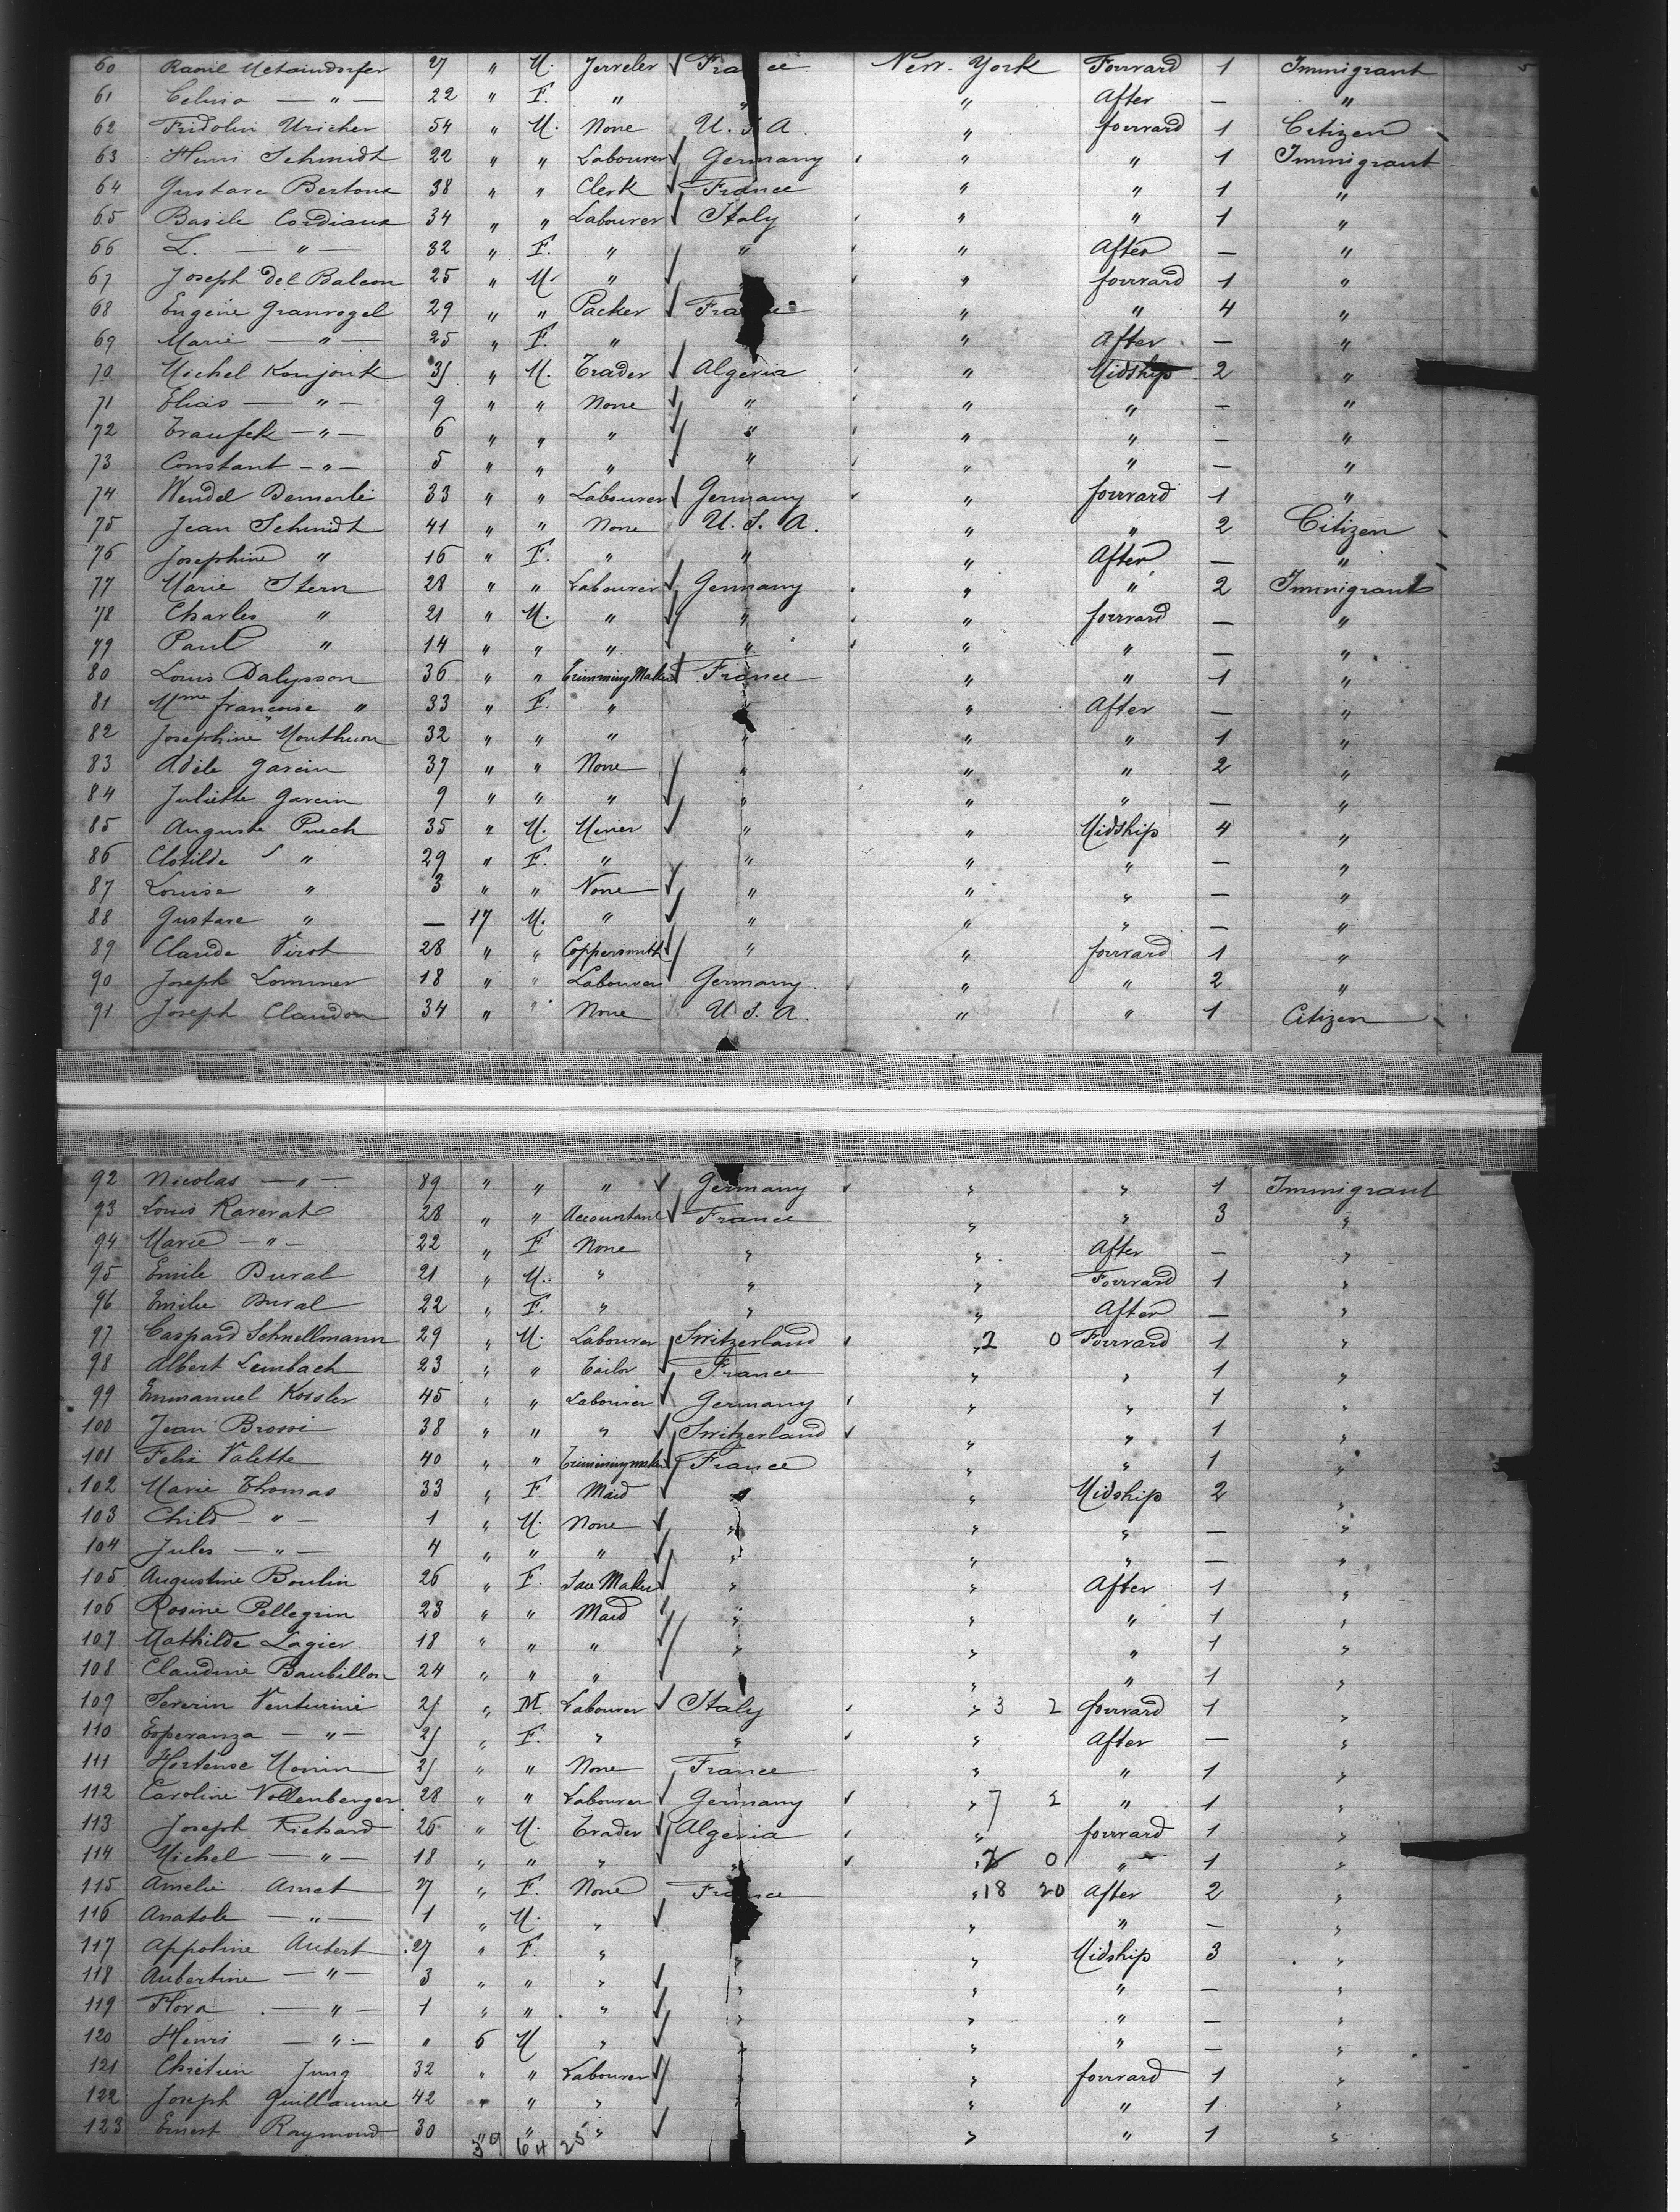 5
60 Raoul Metzindorfer 27 " M. Jerveler France New. York Forward 1 Immigrant
61 Celina — " — 22 " F. " " " After — "
62 Fridolin Uricher 54 " M. None U. S. A. " forward 1 Citizen
63 Henri Schmidt 22 " " Labourer Germany " " 1 Immigrant
64 Gustave Bertoux 38 " " Clerk France " " 1 "
65 Basile Cordiaux 34 " " Labourer Italy " " 1 "
66 L. — " — 32 " F. " " " After — "
67 Joseph del Balcon 25 " M. " " forward 1 "
68 Eugène Granvogel 29 " " Packer France " " 4 "
69 Marie — " — 25 " F. " " After — "
70 Michel Konjonk 35 " M. Trader Algeria " Midship 2 "
71 Elias — " — 9 " " None " " " — "
72 Traufek — " — 6 " " " " " " — "
73 Constant — " — 5 " " " " " " — "
74 Wendel Demerlé 33 " " Labourer Germany " forward 1 "
75 Jean Schmidt 41 " " None U. S. A. " " 2 Citizen
76 Josephine " 16 " F. " " " After — "
77 Marie Stern 28 " " Labourer Germany " " 2 Immigrant
78 Charles " 21 " M. " " " forward — "
79 Paul " 14 " " " " " " — "
80 Louis Dalysson 36 " " Trimming Maker France " " 1 "
81 Mme françoise " 33 " F. " " After — "
82 Josephine Monthuon 32 " " " " " " 1 "
83 Adèle Garcin 37 " " None " " " 2 "
84 Juliette Garcin 9 " " " " " " — "
85 Auguste Puech 35 " M. Miner " " Midship 4 "
86 Clotilde " 29 " F. " " " " — "
87 Louise " 3 " " None " " " — "
88 Gustave " — 17 M. " " " " — "
89 Claude Virot 28 " " Coppersmith " " forward 1 "
90 Joseph Lommer 18 " " Labourer Germany " " 2 "
91 Joseph Claudon 34 " " None U. S. A. " " 1 Citizen
92 Nicolas — " — 89 " " " Germany " " 1 Immigrant
93 Louis Raverat 28 " " Accountant France " " 3 "
94 Marie — " — 22 " F None " " After — "
95 Emile Duval 21 " M. " " " Forward 1 "
96 Emilie Duval 22 " F. " " " After — "
97 Caspard Schnellmann 29 " M. Labourer Switzerland " 2 0 Forward 1 "
98 Albert Leimbach 23 " " Tailor France " " 1 "
99 Emmanuel Kossler 45 " " Labourer Germany " " 1 "
100 Jean Brossi 38 " " " Switzerland " " 1 "
101 Felix Valette 40 " " Trimming maker France " " 1 "
102 Marie Thomas 33 " F. Maid " " Midship 2 "
103 Child — " — 1 " M. None " " " — "
104 Jules — " — 4 " " " " " " — "
105 Augustine Boulin 26 " F. Lace Maker " " After 1 "
106 Rosine Pellegrin 23 " " Maid " " " 1 "
107 Mathilde Lagier 18 " " " " " " 1 "
108 Claudine Baubillon 24 " " " " " 1 "
109 Severin Venturini 25 " M. Labourer Italy " 3 2 forward 1 "
110 Esperanza — " — 25 " F. " " " After — "
111 Hortense Monin 25 " " None France " " 1 "
112 Caroline Vollenberger 28 " " Labourer Germany " 7 2 " 1 "
113 Joseph Richard 26 " M. Trader Algeria " forward 1 "
114 Michel — " — 18 " " " " " 0 " 1 "
115 Amelie Amet 27 " F. None France " 18 20 After 2 "
116 Anatole — " — 1 " M. " " " — "
117 Appoline Aubert 27 " F. " " " Midship 3 "
118 Aubertine — " — 3 " " " " " " — "
119 Flora — " — 1 " " " " " " — "
120 Henri — " — " 6 M " " " " — "
121 Chrétien Jung 32 " " Labourer " " forward 1 "
122 Joseph Guillaume 42 " " " " " " 1 "
123 Ernest Raymond 30 " " " " " 1 "
39 64 25